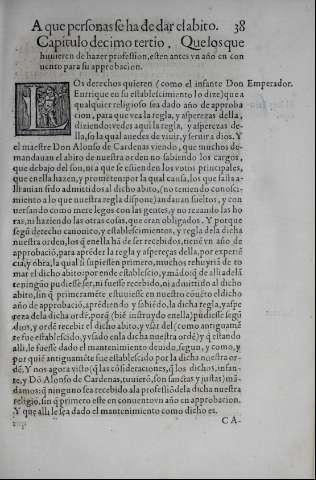 A que personas se ha de dar el abito. 38
Capitulo decimo tertio. Que los que
huuieren de hazer profession, esten antes vn año en con
uento para su approbacion.
LOs derechos quieren (como el infante Don Emperador.
Enrrique en su establescimiento lo dize) que a
qualquier religioso sea dado año de aproba
cion, para que vea la regla, y asperezas della,
diziendo vedes aqui la regla, y asperezas de-
lla, so la qual auedes de viuir, y seruir a dios. Y
el maestre Don Alonso de Cardenas viendo, que muchos de-
mandauan el abito de nuestra orden no sabiendo los cargos,
que debajo del son, ni a que se estienden los votos principales,
que en ella hazen, y prometen por la qual causa, los que fasta a-
lli anian sido admittidos al dicho abito, (no teniendo conosci-
miento a lo que nuestra regla dispone) andauan sueltos, y con
uersando como meros legos con las gentes, y no rezando las ho
ras, ni haziendo las otras cosas, que eran obligados. Y porque
segũ derecho canonito, y establescimientos, y regla de la dicha
nuestra orden, los q̃ en ella hã de ser recebidos, tienẽ vn año de
approbaciõ, para apẽder la regla y asperezas della, por experiẽ
cia, y obra, la qual si supiessen primero, muchos rehuyriã de to
mar el dicho abito: por ende establescio, y mãdo q̃ de alli adelã
te ningũo pudiesse ser, ni fuesse recebido, ni admittido al dicho
abito, sin q̃ primeramẽte estuuiesse en nuestro cõuẽto el dicho
año de approbaciõ, aprẽdiendo y sabiẽdo, la dicha regla, y aspe
reza dela dicha ordẽ, porq̃ (biẽ instruydo en ella) pudiesse segũ
dios, y ordẽ recebir el dicho abito, y vsar del (como antiguamẽ
te fue establescido, y vsado en la dicha nuestra ordẽ) y q̃ estando
alli, le fuesse dado el mantenimiento deuido, segun, y como, y
por quiẽ antiguamẽte fue establescido por la dicha nuestra or
dẽ. Y nos agora visto (q̃ las cõsideraciones, q̃ los dichos, infan-
te, y Dõ Alonso de Cardenas, tuuierõ, son sanctas y justas) mã-
damos: q̃ ninguno sea recebido a la professiõ de la dicha nuestra
religiõ, sin q̃ primero este en conuento vn año en approbacion.
Y que alli le sea dado el mantenimiento como dicho es.
CA-